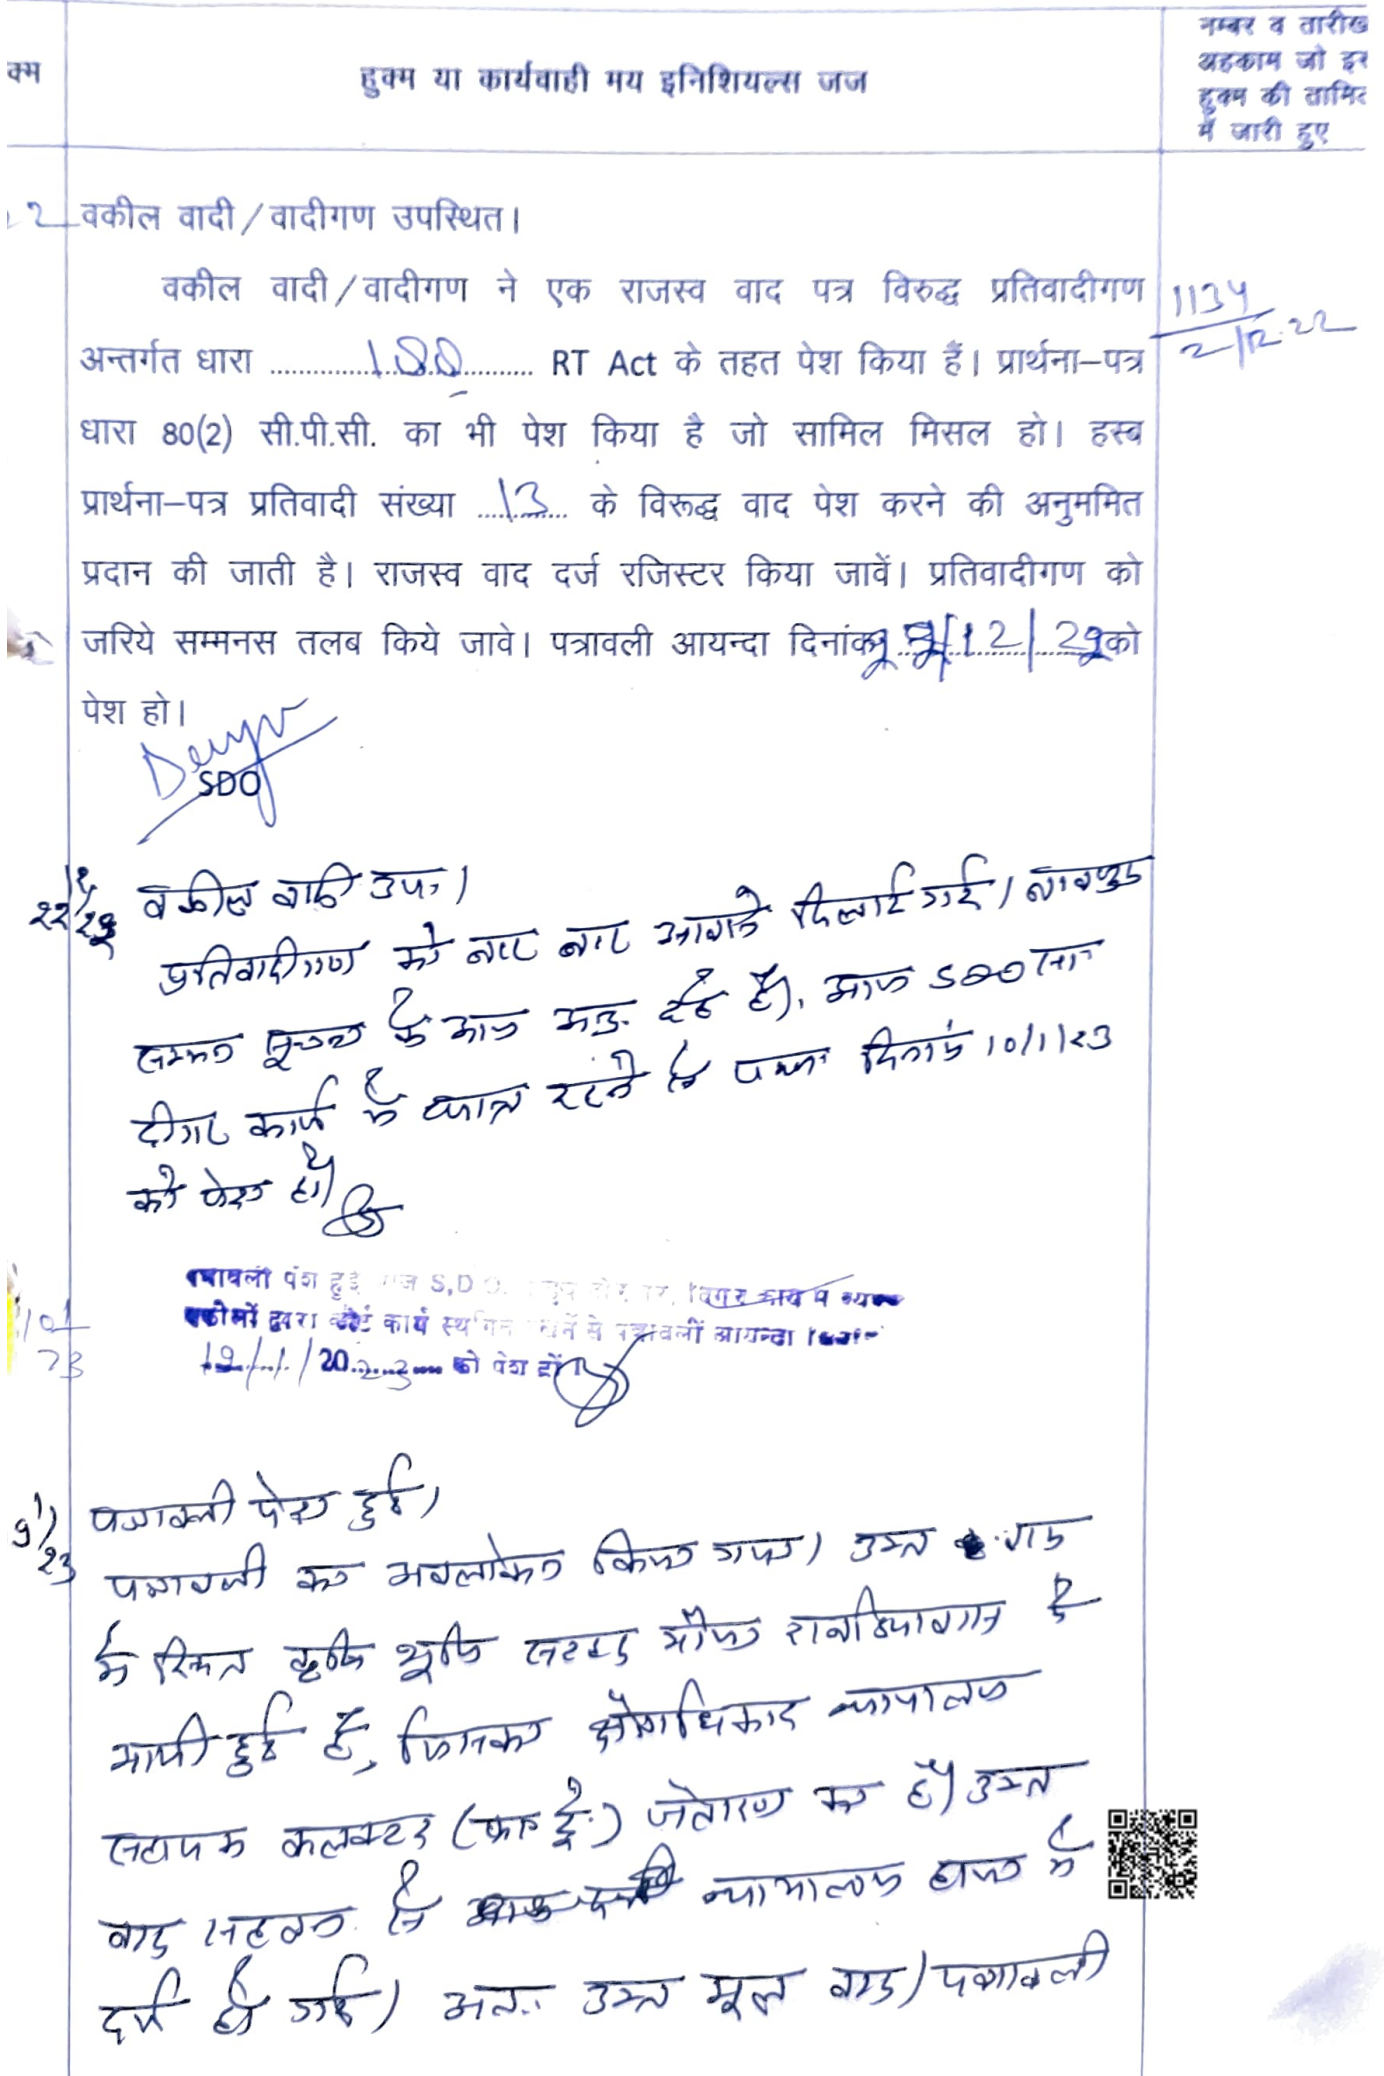 क्म
हुक्म या कार्यवाही मय इनिशियल्स जज
नम्बर व तारीख
अहकाम जो इस
हुक्म की तामिल
में जारी हुए
वकील वादी/वादीगण उपस्थित।
वकील वादी/वादीगण ने एक राजस्व वाद पत्र विरुद्ध प्रतिवादीगण
1134
2/12.22
अन्तर्गत धारा ...188... RT Act के तहत पेश किया हैं। प्रार्थना–पत्र
धारा 80(2) सी.पी.सी. का भी पेश किया है जो सामिल मिसल हो। हस्ब
प्रार्थना–पत्र प्रतिवादी संख्या ...13... के विरूद्ध वाद पेश करने की अनुममित
प्रदान की जाती है। राजस्व वाद दर्ज रजिस्टर किया जावें। प्रतिवादीगण को
जरिये सम्मनस तलब किये जावे। पत्रावली आयन्दा दिनांक /12/22 को
पेश हो।
SDO
वकील वादी उप०।
प्रतिवादीगण को बार बार आवाजे दिलाई गई। बावजुद
सूचना के आज अनु. रहे है। आज SDO सा०
दीगर कार्य में व्यस्त रहने से पत्रा० दिनांक 10/1/23
को पेश हो।
पत्रावली पेश हुई आज S,D O. दिगर कार्य में व्यस्त
वकीलों द्वारा कोर्ट कार्य स्थगित रखनें से पत्रावली आयन्दा
19/1/2023 को पेश हो
पत्रावली पेश हुई।
पत्रावली का अवलोकन किया गया। उक्त वाद
में स्थित कृषि भूमि सरहद मौजा राबडियावास में
आयी हुई है, जिसका क्षेत्राधिकार न्यायालय
सहायक कलक्टर (फा० ट्रे०) जेतारण का है। उक्त
वाद सहवन से न्यायालय हाजा में
दर्ज हो गई। अतः उक्त मूल वाद/पत्रावली